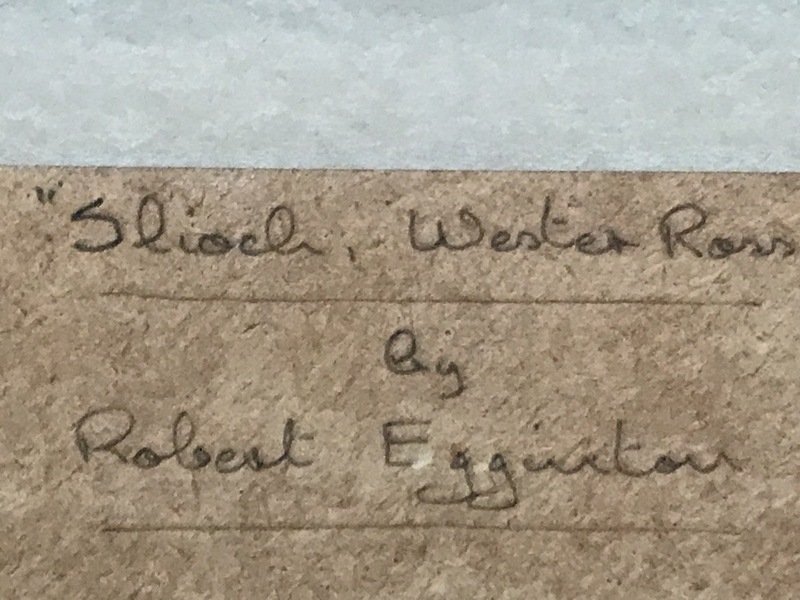 "Slioch, Wester Ross
by
Robert Egginton